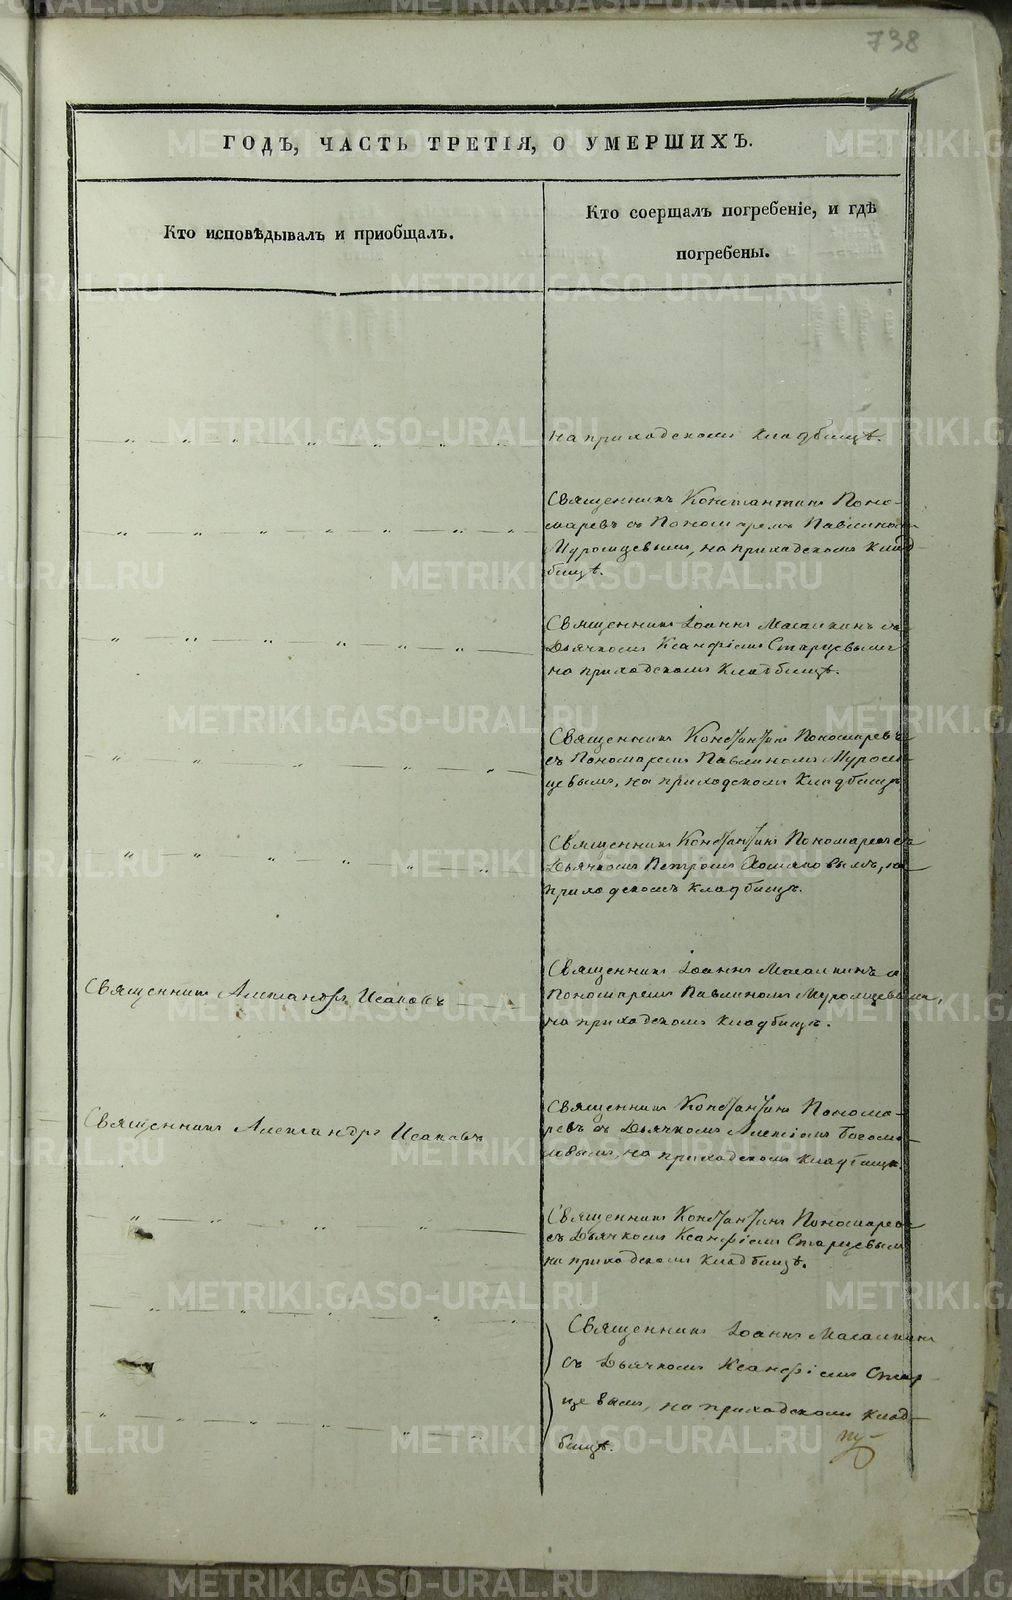 738
ГОДЪ, ЧАСТЬ ТРЕТІЯ, О УМЕРШИХЪ.
Кто исповѣдывалъ и приобщалъ.
Кто соершалъ погребеніе, и гдѣ
погребены.
на приходскомъ кладбищѣ.
Священникъ Константинъ Поно-
маревъ съ Пономаремъ Павлиномъ
Муромцевымъ, на приходскомъ клад-
бищѣ.
Священникъ Іоаннъ Масалкинъ съ
Дьячкомъ Ксанфіемъ Старцевымъ
на приходскомъ кладбищѣ.
Священникъ Константинъ Пономаревъ
съ Пономаремъ Павлиномъ Муром-
цевымъ, на приходскомъ кладбищѣ
Священникъ Константинъ Пономаревъ съ
Дьячкомъ Петромъ Хомяковымъ, на
приходскомъ кладбищѣ.
Священникъ Александръ Исаковъ
Священникъ Іоаннъ Масалкинъ съ
Пономаремъ Павлиномъ Муромцевымъ,
на приходскомъ кладбищѣ.
Священникъ Александръ Исаковъ
Священникъ Константинъ Понома-
ревъ съ Дьячкомъ Алексіемъ Богомо-
ловымъ, на приходскомъ кладбищѣ.
Священникъ Константинъ Пономаревъ
съ Дьячкомъ Ксанфіемъ Старцевымъ
на приходскомъ кладбищѣ.
Священникъ Іоаннъ Масалкинъ
съ Дьячкомъ Ксанфіемъ Стар-
цевымъ, на приходскомъ клад-
бищѣ.
METRIKI.GASO-URAL.RU